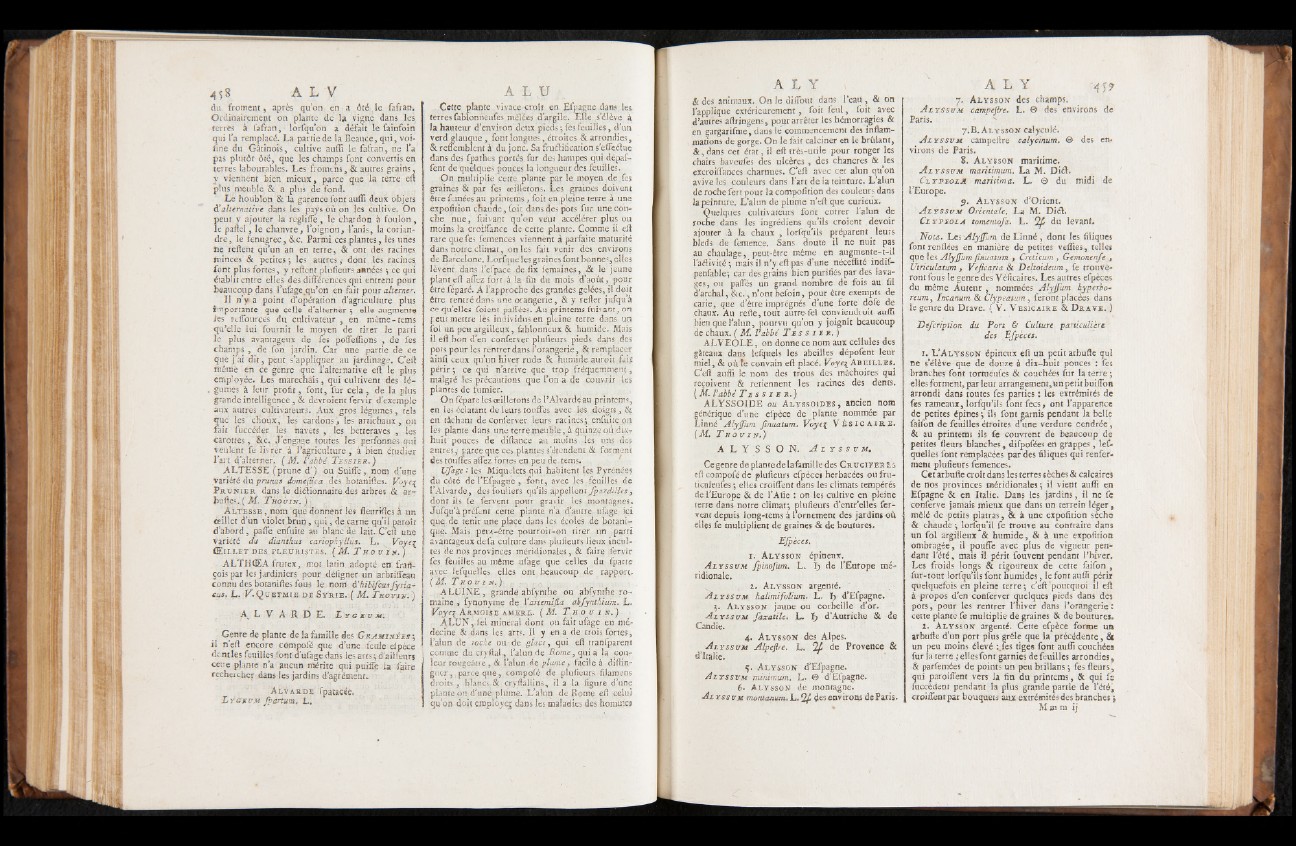 458 A L V
du froment, après qu'on en a ôté le safran.
Ordinairement on plante de la vigne dans les
terres à safran, lorsqu'on a défait le sainfoin
qui l'a remplacé. La partie de la Beauce, qui, voi-
sine du Gâtinois, cultive aussi le safran, ne l'a
pas plutôt ôté, que les champs sont convertis en
terres labourables. Les fromens, & autres grains,
y viennent bien mieux, parce que la terre est
plus meuble & a plus de fond.
Le houblon & la garence sont aussi deux objets
d'alternative dans les pays où on les cultive. On
peut y ajouter la réglisse, le chardon à foulon,
le pastel, le chanvre, l'oignon, l'anis, la corian-
dre, le fenugrec, &c. Parmi ces plantes, les unes
ne restent qu'un an en terre, & ont des racines
minces & petites; les autres, dont les racines
sont plus fortes, y restent plusieurs années; ce qui
établit entre elles des différences qui entrent pour
beaucoup dans l'usage qu'on en fait pour alterner.
Il n'y a point d'opération d'agriculture plus
importante que celle d'alterner; elle augmente
les ressources du cultivateur, en même-tems
qu'elle lui fournit le moyen de tirer le parti
le plus avantageux de ses possessions, de ses
champs, de son jardin. Car une partie de ce
que j'ai dit, peut s'appliquer au jardinage. C'est
même en ce genre que l'alternative est le plus
employée. Les marechais, qui cultivent des lé-
gumes à leur profit, sont, sur cela, de la plus
grande intelligence, & devroient servir d'exemple
aux autres cultivateurs. Aux gros légumes, tels
que les choux, les cardons, les artichaux, on
fait succéder les navets, les betteraves, les
carottes, &c. J'engage toutes les personnes qui
veulent se livrer à l'agriculture, à bien étudier
l'art d'alterner. (M. l'abbé TESSIER.)
ALTESSE (prune d') ou Suisse, nom d'une
variété du prunus domestica des botanistes. Voyez
PRUNIER dans le dictionnaire des arbres & ar-
bustes. (M. THOUIN.)
ALTESSE, nom que donnent les fleuristes à un
œillet d'un violet brun, qui, de carne qu'il paroît
d'abord, passe ensuite au blanc de lait. C'est une
variété du dianthus cariophyllus. L. Voyez
ŒILLET DES FLEURISTES. (M. THOUIN.)
ALTHŒA frutex, mot latin adopté en fran-
çois par les jardiniers pour désigner un arbrisseau
connu des botanistes sous le nom d'hibiscus syria-
cus. L. V. QUETMIE DE SYRIE. (M. THOUIN.)
A L V A R D E. LYGEUM.
Genre de plante de la famille des GRAMINÉES;
il n'est encore composé que d'une seule espèce
dont les feuilles sont d'usage dans les arts; d'ailleurs
cette plante n'a aucun mérite qui puisse la faire
rechercher dans les jardins d'agrément.
ALVARDE spatacée.
LYGEUM spartum. L.
A L U
Cette plante vivace croît en Espagne dans les
terres sablonneuses mêlées d'argile. Elle s'élève à
la hauteur d'environ deux pieds; ses feuilles, d'un
verd glauque, sont longues, étroites & arrondies,
& ressemblent à du jonc. Sa fructification s'effectue
dans des spathes portés sur des hampes qui dépas-
sent de quelques pouces la longueur des feuilles.
On multiplie cette plante par le moyen de ses
graines & par ses œilletons. Les graines doivent
être semées au printems, soit en pleine terre à une
exposition chaude, soit dans des pots sur une cou-
che nue, suivant qu'on veut accélérer plus ou
moins la croissance de cette plante. Comme il est
rare que ses semences viennent à parfaite maturité
dans notre climat, on les fait venir des environs
de Barcelone. Lorsque les graines sont bonnes, elles
lèvent dans l'espace de six semaines, & le jeune
plant est assez fort à la fin du mois d'août, pour
être séparé. A l'approche des grandes gelées, il doit
être rentré dans une orangerie, & y rester jusqu'à
ce qu'elles soient passées. Au printems suivant, on
peut mettre les individus en pleine terre dans un
sol un peu argilleux, sablonneux & humide. Mais
il est bon d'en conserver plusieurs pieds dans des
pots pour les rentrer dans l'orangerie, & remplacer
ainsi ceux qu'un hiver rude & humide auroit fait
périr; ce qui n'arrive que trop fréquemment,
malgré les précautions que l'on a de couvrir les
plantes de fumier.
On sépare les œilletons de l'Alvarde au printems,
en les éclatant de leurs touffes avec les doigts, &
en tâchant de conserver leurs racines; ensuite on
les plante dans une terre meuble, à quinze ou dix-
huit pouces de distance au moins les uns des
autres, parce que ces plantes s'étendent & forment
des touffes assez fortes en peu de tems.
Usage: les Miquelets qui habitent les Pyrenées
du côté de l'Espagne, font, avec les feuilles de
l'Alvarde, des souliers qu'ils appellent spardilles,
dont ils se servent pour gravir les montagnes.
Jusqu'à présent cette plante n'a d'autre usage ici
que de tenir une place dans les écoles de botani-
que. Mais peut-être pourroit-on tirer un parti
avantageux de sa culture dans plusieurs lieux incul-
tes de nos provinces méridionales, & faire servir
ses feuilles au même usage que celles du sparte
avec lesquelles elles ont beaucoup de rapport.
(M. THOUIN.)
ALUINE, grande absynthe ou absynthe ro-
maine, synonyme de l'artemisia absynthium. L.
Voyez ARMOISE AMERE. (M. THOUIN.)
ALUN, sel mineral dont on fait usage en mé-
decine & dans les arts. Il y en a de trois sortes,
l'alun de roche ou de glace, qui est transparent
comme du crystal, l'alun de Rome, qui a la cou-
leur rougeâtre, & l'alun de plume, facile à distin-
guer, parce que, composé de plusieurs filamens
droits, blancs & crystallins, il a la figure d'une
plante ou d'une plume. L'alun de Rome est celui
qu'on doit employer dans les maladies des hommes
A L Y
& des animaux. On le dissout dans l'eau, & on
l'applique extérieurement, soit seul, soit avec
d'autres astringens, pour arrêter les hémorragies &
en gargarisme, dans le commencement des inflam-
mations de gorge. On le fait calciner en le brûlant,
&, dans cet état, il est très-utile pour ronger les
chairs baveuses des ulcères, des chancres & les
excroissances charnues. C'est avec cet alun qu'on
avive les couleurs dans l'art de la teinture. L'alun
de roche sert pour la composition des couleurs dans
la peinture. L'alun de plume n'est que curieux.
Quelques cultivateurs font entrer l'alun de
roche dans les ingrédiens qu'ils croient devoir
ajouter à la chaux, lorsqu'ils préparent leurs
bleds de semence. Sans doute il ne nuit pas
au chaulage, peut-être même en augmente-t-il
l'activité; mais il n'y est pas d'une nécessité indis-
pensable; car des grains bien purifiés par des lava-
ges, ou passés un grand nombre de fois au fil
d'archal, &c., n'ont besoin, pour être exempts de
carie, que d'être impregnés d'une forte dose de
chaux. Au reste, tout autre sel conviendroit aussi
bien que l'alun, pourvu qu'on y joignît beaucoup
de chaux. (M. l'abbé TESSIER.)
ALVEOLE, on donne ce nom aux cellules des
gâteaux dans lesquels les abeilles déposent leur
miel, & où le couvain est placé. Voyez ABEILLES.
C'est aussi le nom des trous des mâchoires qui
reçoivent & retiennent les racines des dents.
(M. l'abbé TESSIER.)
ALYSSOIDE ou ALYSSOIDES, ancien nom
générique d'une espéce de plante nommée par
Linné Alyssum sinuatum. Voyez VÉSICAIRE.
(M. THOUIN.)
A L Y S S O N. ALYSSUM.
Ce genre de plante de la famille des CRUCIFERES
est composé de plusieurs espèces herbacées ou fru-
ticuleuses; elles croissent dans les climats tempérés
de l'Europe & de l'Asie: on les cultive en pleine
terre dans notre climat; plusieurs d'entr'elles ser-
vent depuis long-tems à l'ornement des jardins où
elles se multiplient de graines & de boutures.
Espèces.
1. ALYSSON épineux.
ALYSSUM spinosum. L. ♄ de l'Europe mé-
ridionale.
2. ALYSSON argenté.
ALYSSUM halimifolium. L. ♄ d'Espagne.
3. ALYSSON jaune ou corbeille d'or.
ALYSSUM saxatile. L. ♄ d'Autriche & de
Candie.
4. ALYSSON des Alpes.
ALYSSUM Alpestre. L. ♃ de Provence &
d'Italie.
5. ALYSSON d'Espagne.
ALYSSUM minimum. L. ☉ d'Espagne.
6. ALYSSON de montagne.
ALYSSUM montanum. L. ♃ des environs de Paris.
A L Y 459
7. ALYSSON des champs.
ALYSSUM campestre. L. ☉ des environs de
Paris.
7. B. ALYSSON calyculé.
ALYSSUM campestre calycinum. ☉ des en-
virons de Paris.
8. ALYSSON maritime.
ALYSSUM maritimum. La M. Dict.
CLYPEOLA maritima. L. ☉ du midi de
l'Europe.
9. ALYSSON d'Orient.
ALYSSUM Orientale. La M. Dict.
CLYPEOLA tomentosa. L. ♃ du levant.
Nota. Les Alyssum de Linné, dont les siliques
sont renflées en manière de petites vessies, telles
que les Alyssum sinuatum, Creticum, Gemonense,
Utriculatum, Vesicaria & Deltoideum, se trouve-
ront sous le genre des Vésicaires. Les autres espèces
du même Auteur, nommées Alyssum hyperbo-
reum, Incanum & Clypeatum, seront placées dans
le genre du Drave. (V. VESICAIRE & DRAVE.)
Description du Port & Culture particulière
des Espèces.
1. L'ALYSSON épineux est un petit arbuste qui
ne s'élève que de douze à dix-huit pouces: ses
branches sont tortueuses & couchées sur la terre;
elles forment, par leur arrangement, un petit buisson
arrondi dans toutes ses parties: les extrémités de
ses rameaux, lorsqu'ils sont secs, ont l'apparence
de petites épines; ils sont garnis pendant la belle
saison de feuilles étroites d'une verdure cendrée,
& au printems ils se couvrent de beaucoup de
petites fleurs blanches, disposées en grappes, les-
quelles sont remplacées par des siliques qui renfer-
ment plusieurs semences.
Cet arbuste croît dans les terres sèches & calcaires
de nos provinces méridionales; il vient aussi en
Espagne & en Italie. Dans les jardins, il ne se
conserve jamais mieux que dans un terrein léger,
mêlé de petits platras, & à une exposition sèche
& chaude; lorsqu'il se trouve au contraire dans
un sol argilleux & humide, & à une exposition
ombragée, il pousse avec plus de vigueur pen-
dant l'été, mais il périt souvent pendant l'hiver.
Les froids longs & rigoureux de cette saison,
sur-tout lorsqu'ils sont humides, le font aussi périr
quelquefois en pleine terre; c'est pourquoi il est
à propos d'en conserver quelques pieds dans des
pots, pour les rentrer l'hiver dans l'orangerie:
cette plante se multiplie de graines & de boutures.
2. ALYSSON argenté. Cette espèce forme un
arbuste d'un port plus grêle que la précédente, &
un peu moins élevé; ses tiges sont aussi couchées
sur la terre; elles sont garnies de feuilles arrondies,
& parsemées de points un peu brillans; ses fleurs,
qui paroissent vers la fin du printems, & qui se
succèdent pendant la plus grande partie de l'été,
croissent par bouquets aux extrémités des branches;
M m m ij